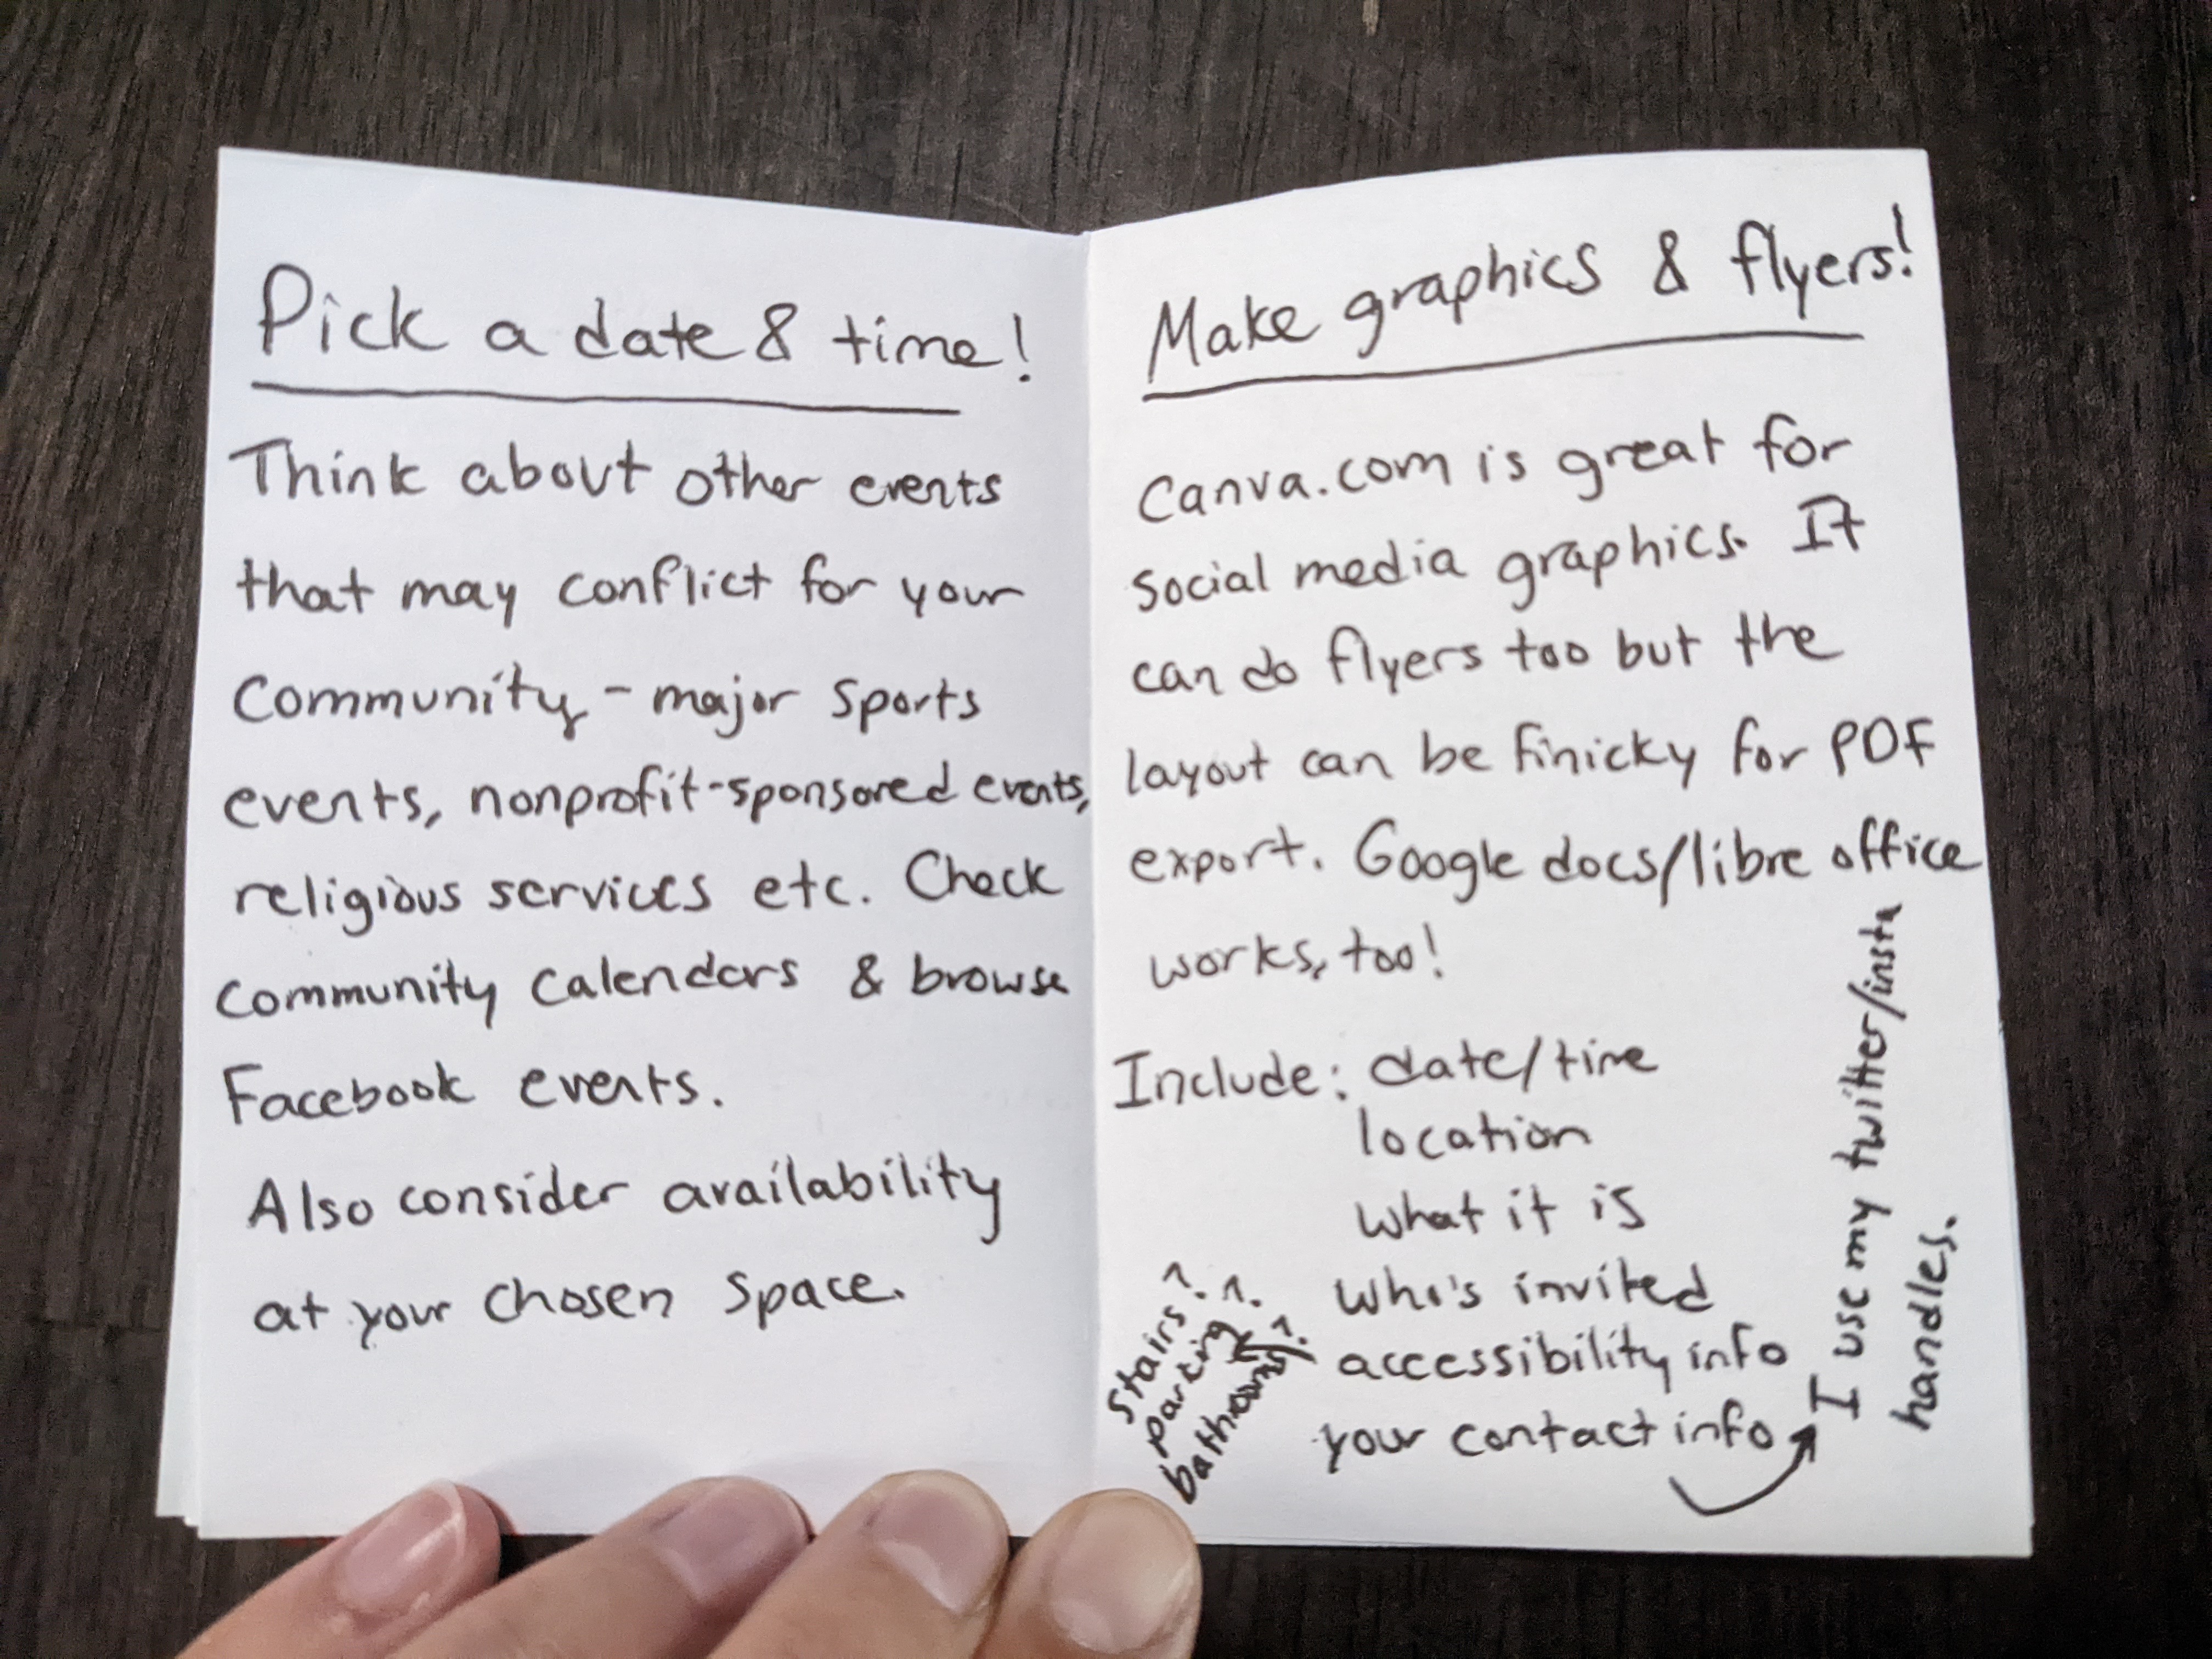 Pick a date & time!
Think about other events
that may conflict for your
community - major sports
events, nonprofit-sponsored events,
religious services etc. Check
community calendars & browse
Facebook events.
Also consider availability
at your chosen space.
Make graphics & flyers!
Canva.com is great for
social media graphics. It
can do flyers too but the
layout can be finicky for PDF
export. Google docs/libre office
works, too!
Include: date/time
location
what it is
who's invited
accessibility info
your contact info
stairs?
parking?
bathrooms?
I use my twitter/insta
handles.